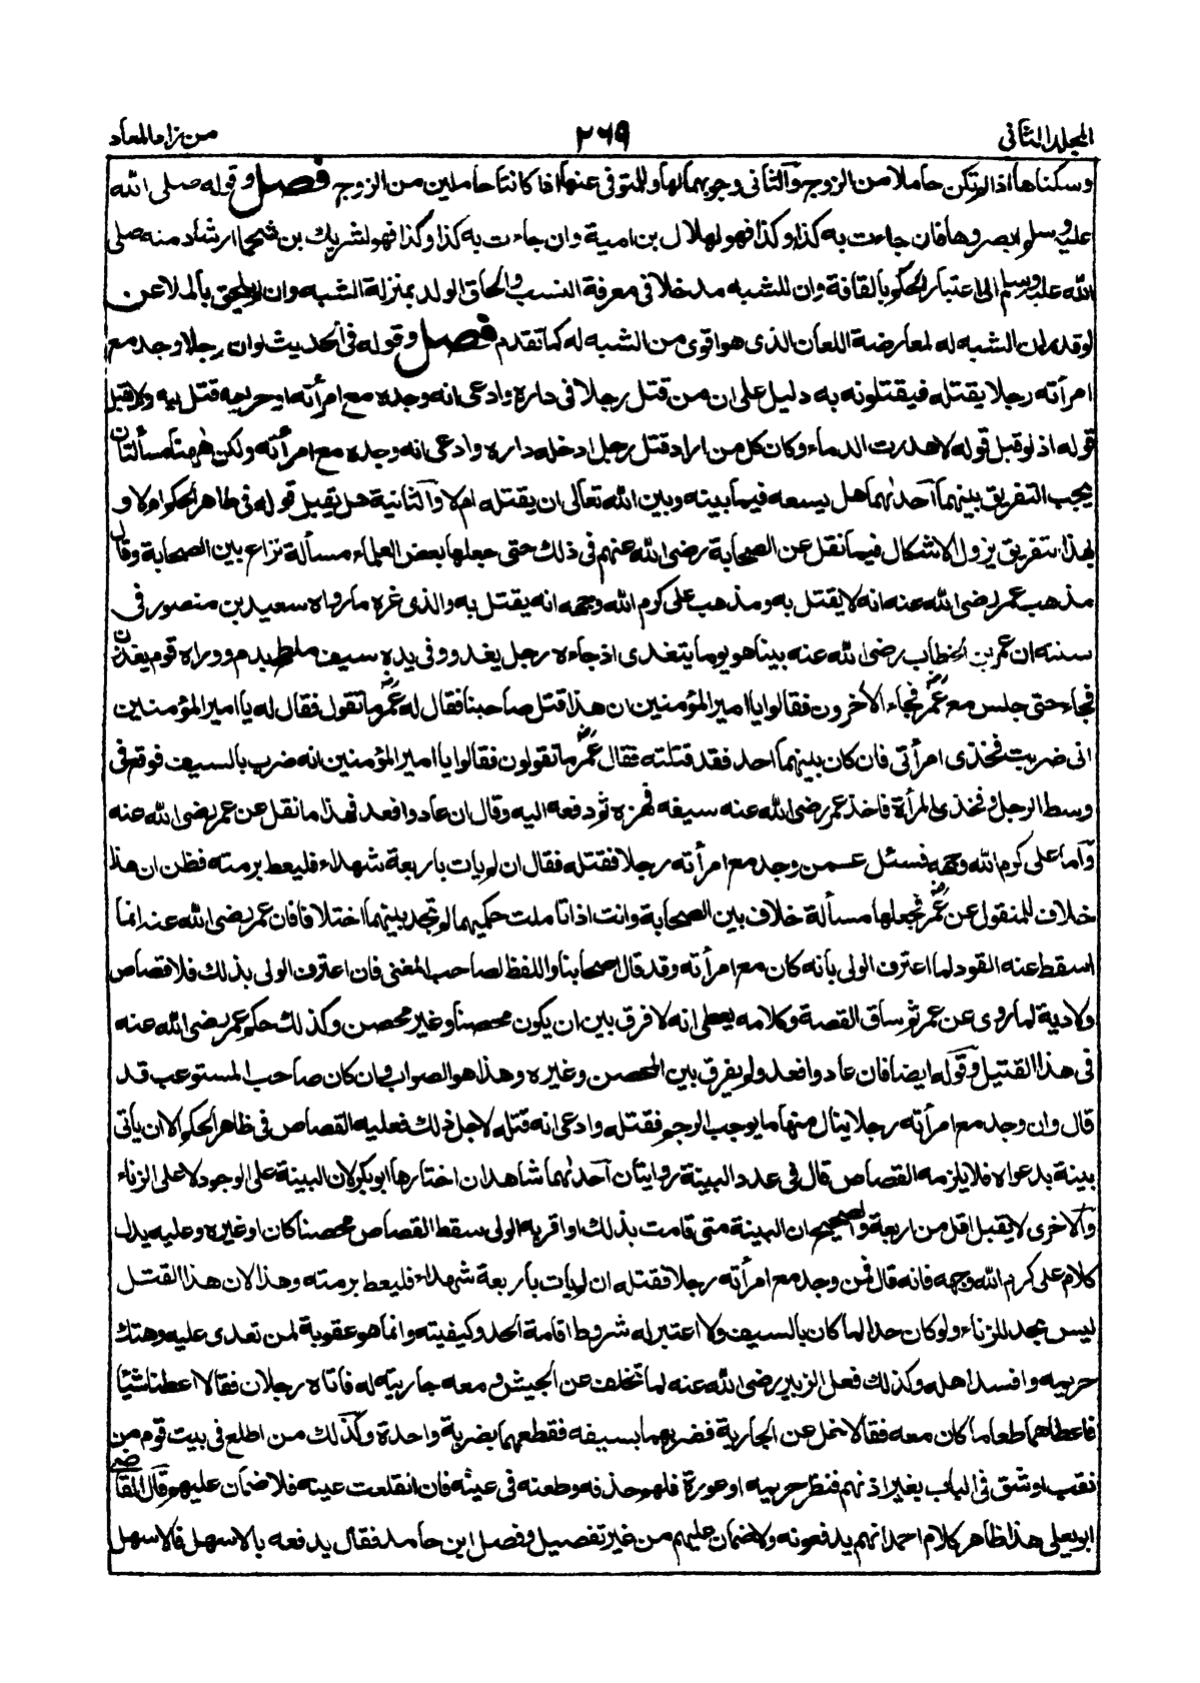 المجلد الثانى
٢٦٩
من زاد المعاد
وسكناها اذا لم تكن حاملا من الزوج والثانى وجوبهما لها وللمتوفى عنها اذا كانتا حاملين من الزوج فصل وقوله صلى الله
عليه وسلم ابصروها فان جاءت به كذا وكذا فهو لهلال بن امية وان جاءت به كذا وكذا فهو لشريك بن سحما ارشاد منه صلى
الله عليه وسلم الى اعتبار الحكم بالقافة وان للشبه مدخلا فى معرفة النسب والحاق الولد بمنزلة الشبه وان لم يلحق بالملاعن
لو قدر ان الشبه له لمعارضة اللعان الذى هو اقوى من الشبه له كما تقدم فصل وقوله فى الحديث لو ان رجلا وجد مع
امرأته رجلا يقتله فيقتلونه به دليل على ان من قتل رجلا فى داره وادعى انه وجده مع امرأته او حريمه قتل به ولا يقبل
قوله اذ لو قبل قوله لاهدرت الدماء وكان كل من اراد قتل رجل ادخله داره وادعى انه وجده مع امرأته ولكن ههنا مسألتان
يجب التفريق بينهما احدٰهما هل يسعه فيما بينه وبين الله تعالى ان يقتله ام لا والثانية هل يقبل قوله فى ظاهر الحكم ام لا و
بهذا التفريق يزول الاشكال فيما نقل عن الصحابة رضى الله عنهم فى ذلك حتى جعلها بعض العلماء مسألة نزاع بين الصحابة وقال
مذهب عمر رضى الله عنه انه لا يقتل به ومذهب على كرم الله وجهه انه يقتل به والذى غره ما رواه سعيد بن منصور فى
سننه ان عمر بن الخطاب رضى الله عنه بينا هو يوما يتغدى اذ جاءه رجل يغدو وفى يده سيف ملطخ بدم ووراه قوم يغدون
فجاء حتى جلس مع عمر فجاء الاخرون فقالوا يا امير المؤمنين ان هذا قتل صاحبنا فقال له عمر ما تقول فقال له يا امير المؤمنين
انى ضربت فخذى امرأتى فان كان بينهما احد فقد قتلته فقال عمر ما تقولون فقالوا يا امير المؤمنين انه ضرب بالسيف فوقع فى
وسط الرجل وفخذى المرأة فاخذ عمر رضى الله عنه سيفه فهزه ثم دفعه اليه وقال ان عادوا فعد فهذا ما نقل عن عمر رضى الله عنه
واما على كرم الله وجهه فسئل عمن وجد مع امرأته رجلا فقتله فقال ان لم يات باربعة شهداء فليعط برمته فظن ان هذا
خلاف للمنقول عن عمر فجعلها مسألة خلاف بين الصحابة وانت اذا تاملت حكميهما لم تجد بينهما اختلافا فان عمر رضى الله عنه انما
اسقط عنه القود لما اعترف الولى بانه كان مع امرأته وقد قال اصحابنا واللفظ لصاحب المغنى فان اعترف الولى بذلك فلا قصاص
ولا دية لما روى عن عمر ثم ساق القصة وكلامه يعطى انه لا فرق بين ان يكون محصنا وغير محصن وكذلك حكم عمر رضى الله عنه
فى هذا القتيل وقوله ايضا فان عادوا فعد ولم يفرق بين المحصن وغيره وهذا هو الصواب وان كان صاحب المستوعب قد
قال وان وجد مع امرأته رجلا ينال منها ما يوجب الرجم فقتله وادعى انه قتله لاجل ذلك فعليه القصاص فى ظاهر الحكم الا ان يأتى
بينة بدعواه فلا يلزمه القصاص قال فى عدد البينة روايتان احدٰهما شاهدان اختارها ابو بكر لان البينة على الوجود لا على الزناء
والاخرى لا يقبل اقل من اربعة والصحيح ان البينة متى قامت بذلك او اقر به الولى سقط القصاص محصنا كان او غيره وعليه يدل
كلام على كرم الله وجهه فانه قال فمن وجد مع امرأته رجلا فقتله ان لم يات باربعة شهداء فليعط برمته وهذا لان هذا القتل
ليس بحد للزناء ولو كان حدا لما كان بالسيف ولا اعتبر له شروط اقامة الحد وكيفيته وانما هو عقوبة لمن تعدى عليه وهتك
حريمه وافسد اهله وكذلك فعل الزبير رضى الله عنه لما تخلف عن الجيش ومعه جارية له فاتاه رجلان فقالا اعطنا شيئا
فاعطاهما طعاما كان معه فقالا خل عن الجارية فضربهما بسيفه فقطعهما بضربة واحدة وكذلك من اطلع فى بيت قوم من
نقب او شق فى الباب بغير اذنهم فنظر حريمه او عورة فلهم حذفه وطعنه فى عينه فان انقلعت عينه فلا ضمان عليهم وقال القاضى
ابو يعلى هذا ظاهر كلام احمد انهم يدفعونه ولا ضمان عليهم من غير تفصيل وفصل ابن حامد فقال يدفعه بالاسهل فالاسهل